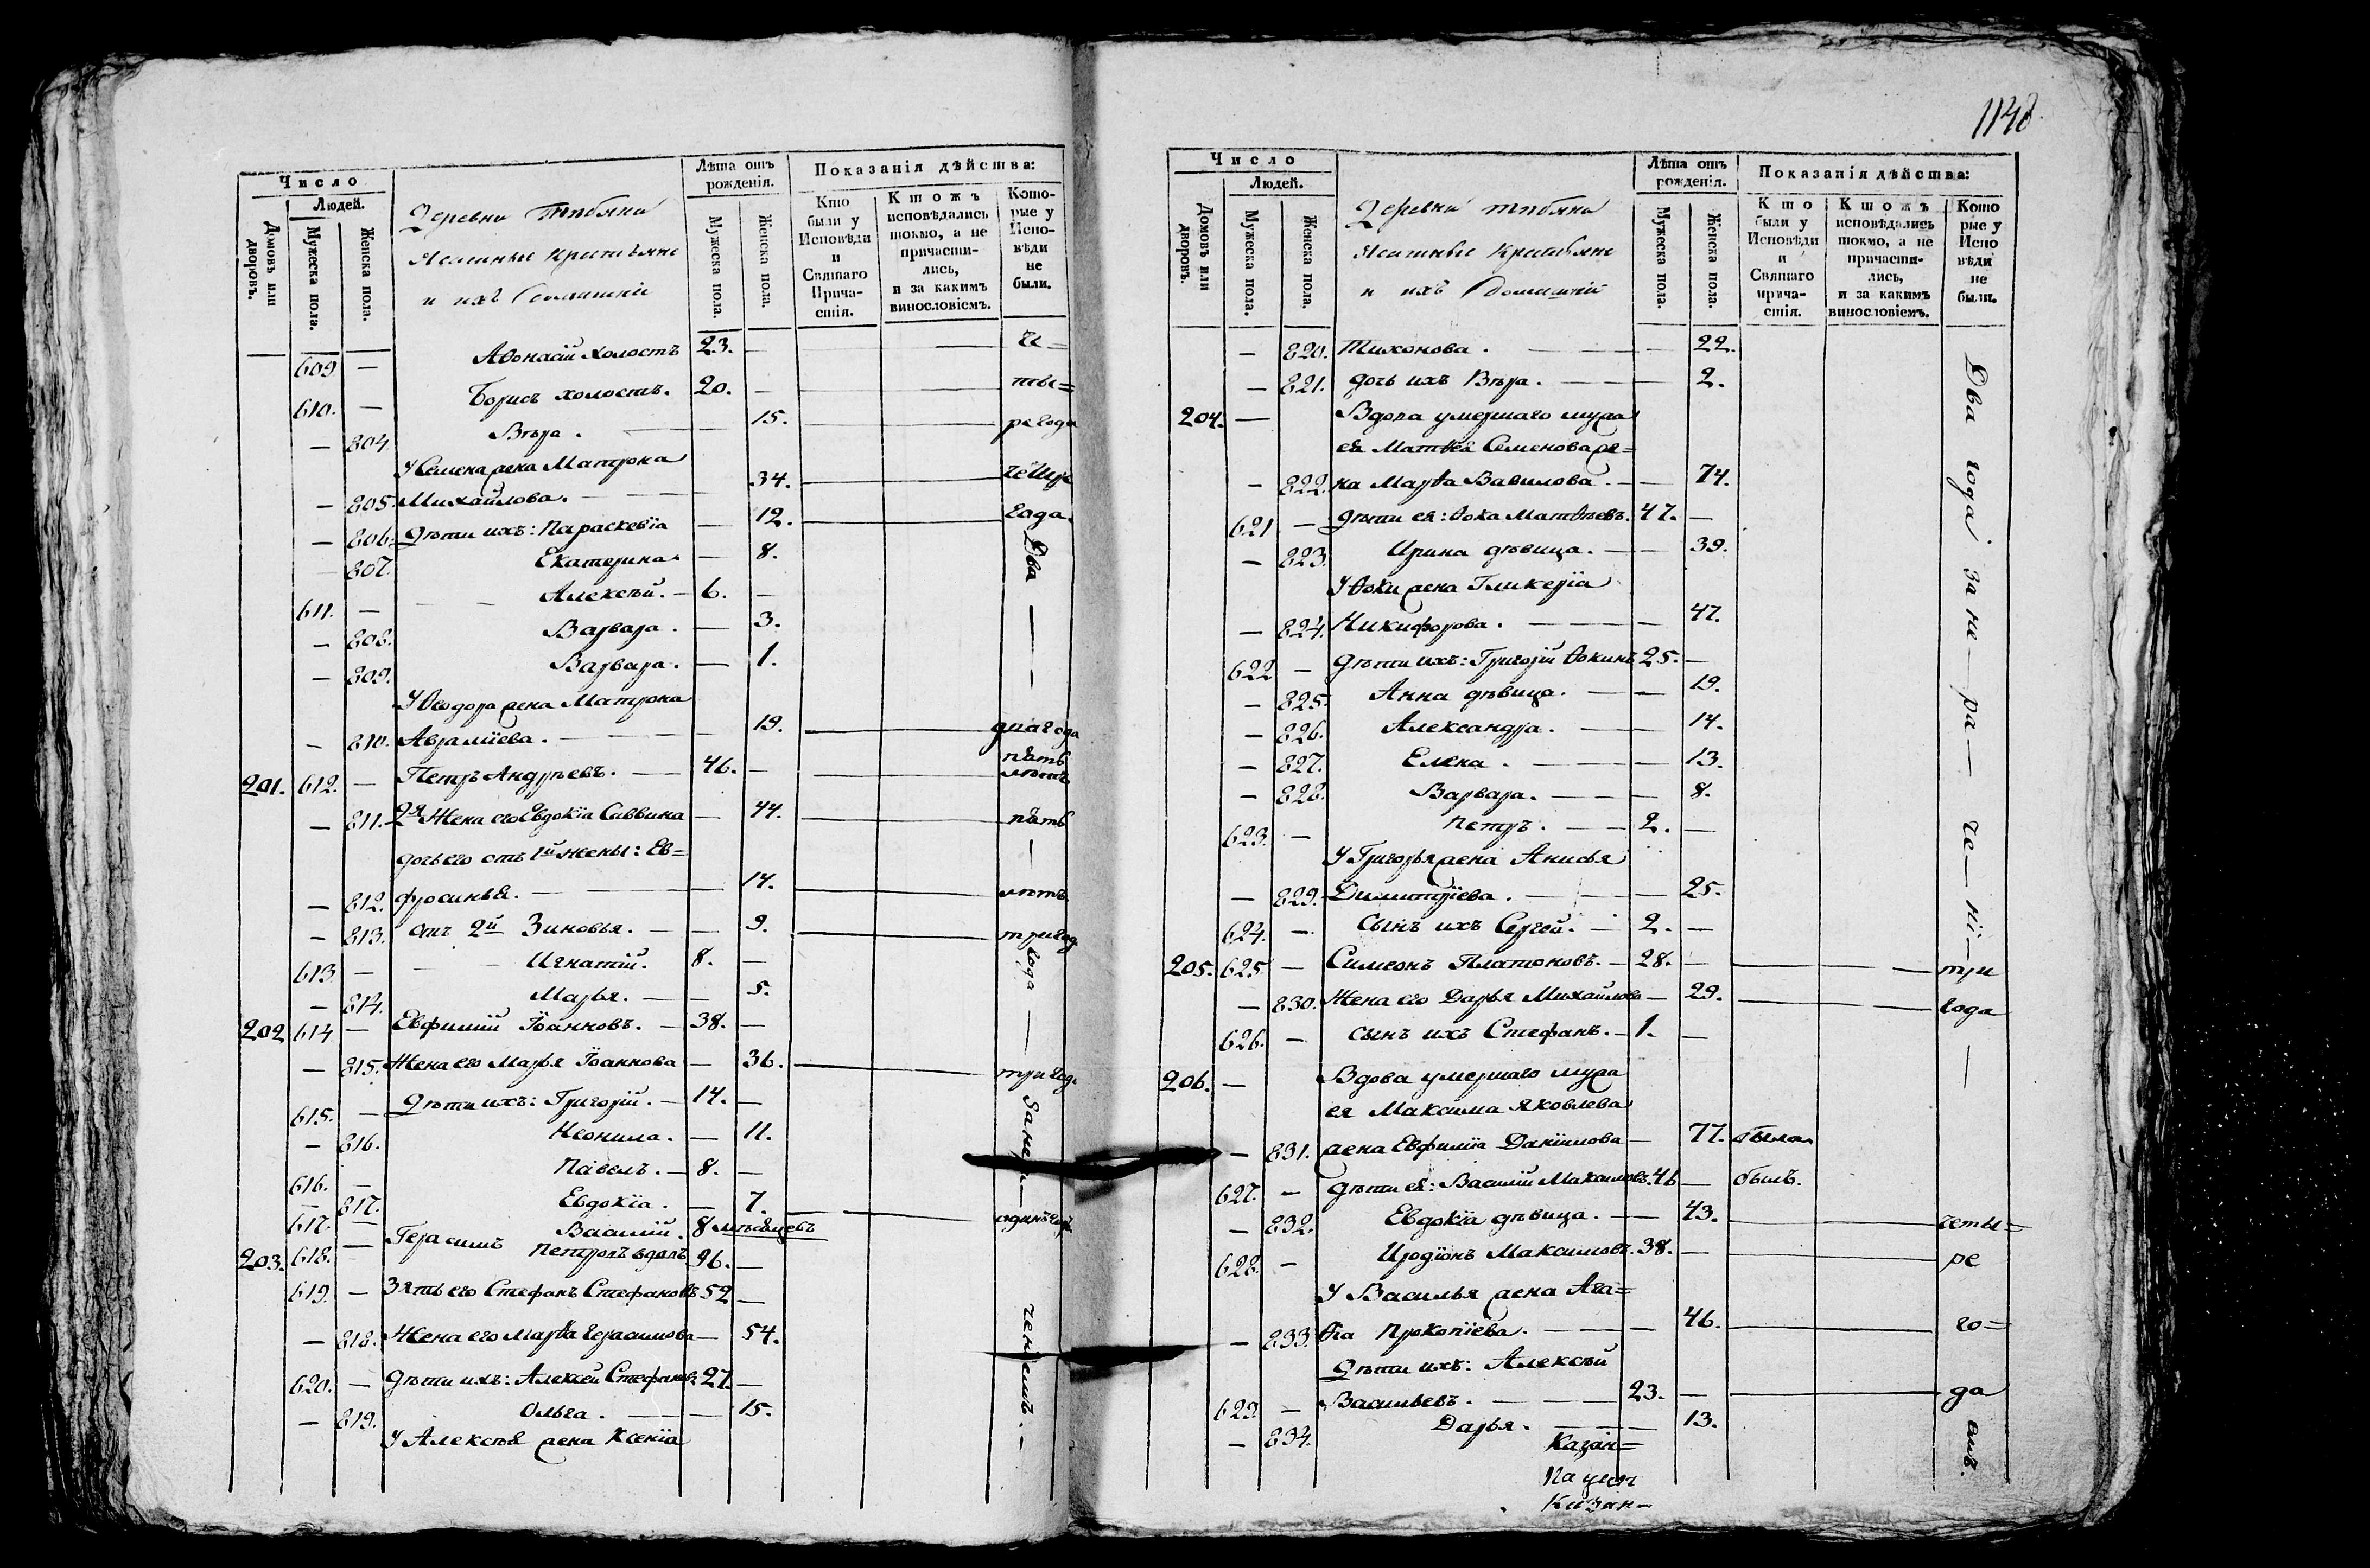 Число
Людей.
Домовъ или дворовъ.
Мужеска пола.
Женска пола.
Деревни
Ясашные крестьяне
и ихъ домашніи
Лѣта отъ рожденія.
Мужеска пола.
Женска пола.
Показанія дѣйства:
Кто были у Исповѣди и Святаго Прича-стія.
Ктожъ исповѣдались токмо, а не причасти-лись, и за какимъ винословіемъ.
Кото-рые у Испо-вѣди не были.
609 — Аѳонасій холостъ 23. — че=
610. — Борисъ холостъ. 20. — ты=
— 804. Вѣра. — 15. ре года
У Семена жена Матрона
— 805. Михайлова. — 34. четыре
— 806. Дѣти ихъ: Параскевіа — 12. года.
— 807. Екатерина — 8. Два
611. — Алексѣй. — 6. —
— 808. Варвара. — 3.
— 809. Варвара. — 1.
У Ѳеодора жена Матрона
— 810. Авраміева. — 19. два года
201. 612. — Петръ Андреевъ. — 46. — пять лѣтъ
— 811. 2я Жена его Евдокіа Саввина — 44. пять
дочь его отъ 1й жены: Ев=
— 812. фросинья. — 14. лѣтъ
— 813. отъ 2й Зиновья. — 9. три год
613 — Игнатій. 8. — года
— 814. Марья. — 5.
202 614 — Евфимій Іоанновъ. — 38. —
— 815. Жена его Марья Іоаннова — 36. три год
615. — Дѣти ихъ: Григорій. — 14. —
— 816. Неонила. — 11.
616. — Павелъ. — 8. —
— 817. Евдокіа. — 7.
617. — Василій. 8 мѣсяцевъ одинъ годъ
203. 618. — Герасимъ Петровъ вдовъ 96. —
619. — Зять его Стефанъ Стефановъ 52 —
— 818. Жена его Марѳа Герасимова — 54.
620. — Дѣти ихъ: Алексей Стефановъ 27. —
— 819. Ольга. — 15.
У Алексѣя жена Ксеніа
за нера-
ченіемъ. —
1148
Число
Людей.
Домовъ или дворовъ.
Мужеска пола.
Женска пола.
Деревни
Ясашные крестьяне
и ихъ домашніи
Лѣта отъ рожденія.
Мужеска пола.
Женска пола.
Показанія дѣйства:
Кто были у Исповѣди и Святаго прича-стія.
Ктожъ исповѣдались токмо, а не причасти-лись, и за какимъ винословіемъ.
Кото рые у Испо вѣди не были.
— 820. Тихонова. — 22.
— 821. дочь ихъ Вѣра. — 2.
204. — Вдова умершаго мужа
ея Матѳея Семенова же=
— 822. на Марѳа Вавилова. — 74.
621 — дѣти ея: Ѳока Матѳѣевъ. 47. —
— 823. Ирина дѣвица. — 39.
У Ѳоки жена Гликеріа
— 824. Никифорова. — 47.
622 — дѣти ихъ: Григорій Ѳокинъ 25. —
— 825. Анна дѣвица. — 19.
— 826. Александра. — 14.
— 827. Елена. — 13.
— 828. Варвара. — 8.
623. — Петръ. — 2. —
У Григорья жена Анисья
— 829. Димитріева. — 25.
624. — Сынъ ихъ Сергей. — 2. —
205. 625 — Симеонъ Платоновъ. — 28. — три
— 830. Жена его Дарья Михайлова — 29. года
626. — сынъ ихъ Стефанъ. — 1. —
206. — Вдова умершаго мужа
ея Максима Яковлева
— 831. жена Евфиміа Даніилова — 77. была
627. — дѣти ея: Василій Максимовъ. 46 — былъ.
— 832. Евдокіа дѣвица. — 43. четы=
628. — Иродіонъ Максимовъ. 38. — ре
У Василья жена Ага=
— 833. ѳіа Прокопіева. — 46. го=
Дѣти ихъ: Алексѣй
629 — Васильевъ. — 23. — да
— 834. Дарья. — 13.
Казан=
Казан-
Два года. за не — ра — че — ні —
емъ.